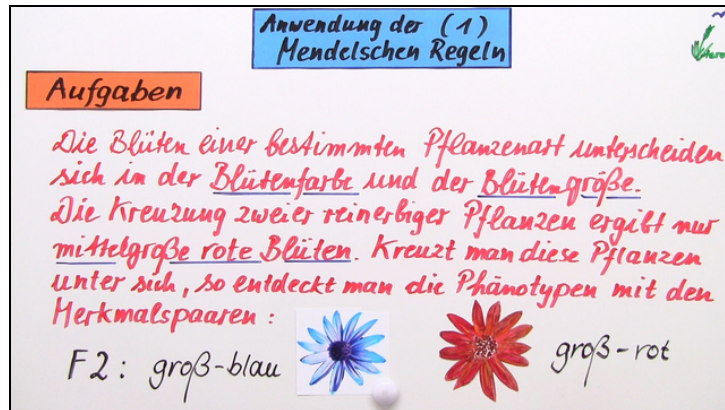 Anwendung der (1)
Mendelschen Regeln
Aufgaben
Die Blüten einer bestimmten Pflanzenart unterscheiden
sich in der Blütenfarbe und der Blütengröße.
Die Kreuzung zweier reinerbiger Pflanzen ergibt nur
mittelgroße rote Blüten. Kreuzt man diese Pflanzen
unter sich, so entdeckt man die Phänotypen mit den
Merkmalspaaren:
F2: groß-blau groß-rot